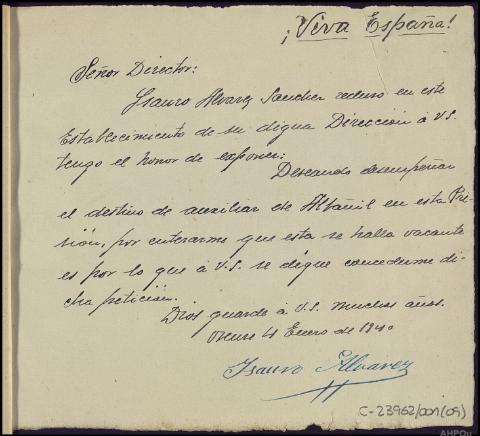 ¡Viva España!
Señor Director:
Isauro Alvarez Sanchez recluso en este
Establecimiento de su digna Dirección á V.S.
tengo el honor de exponer:
Deseando desempeñar
el destino de auxiliar de Albañil en esta Pri-
sión, por enterarme que esta se halla vacante
es por lo que á V.S. se digue concederme di-
cha petición.
Dios guarde á V.S. muchos años.
Orense 4 Enero de 1940
Isauro Alvarez
C-23962/001(09)
AHPOu